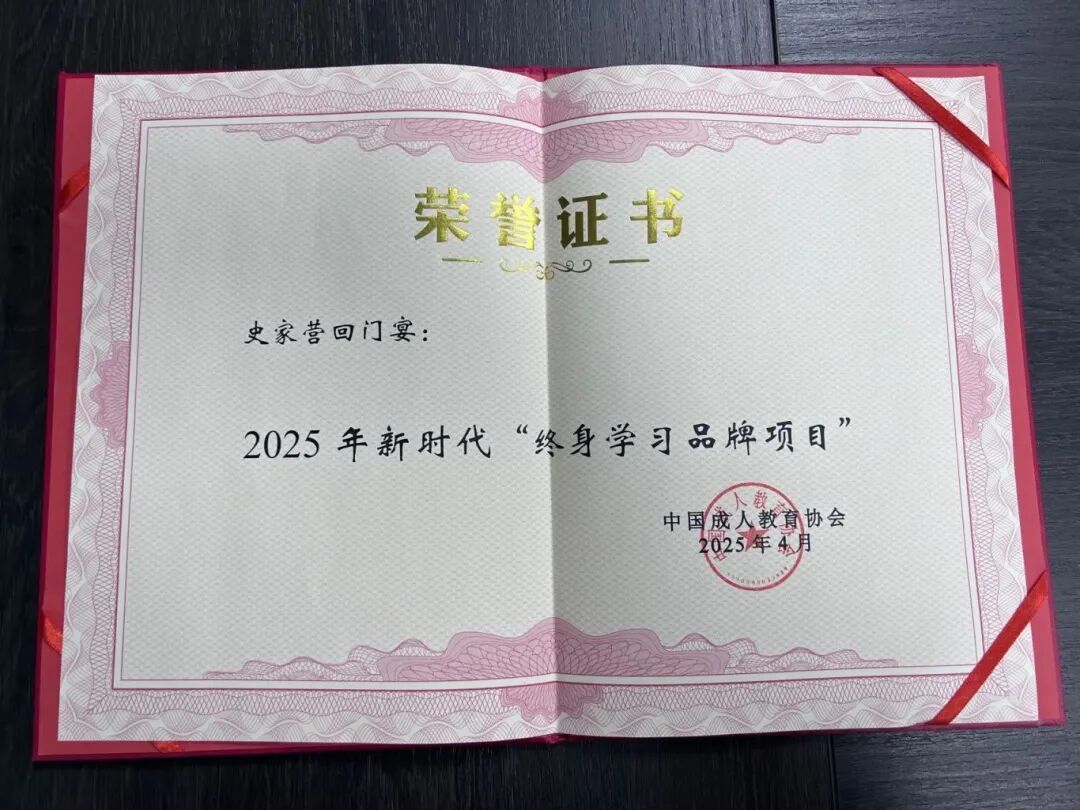 荣誉证书
史家营回门宴：
2025 年新时代“终身学习品牌项目”
中国成人教育协会
2025 年 4 月
中国成人教育协会